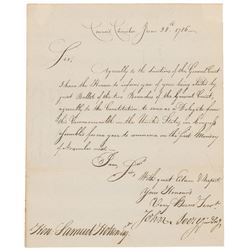 Council Chamber June 28th 1786
Sir,
Agreeably to the directions of the General Court
I have the Honor to inform you of your being elected by
joint Ballot of the two Branches of the General Court,
agreeably to the Constitution to serve as a Delegate from
this Commonwealth in the United States in Congress
assembled for one year to commence on the first Monday
of November next.
I am, Sir,
With great Esteem & Respect
Your Honour's
Very Humble Servt
John Avery
Hon. Samuel